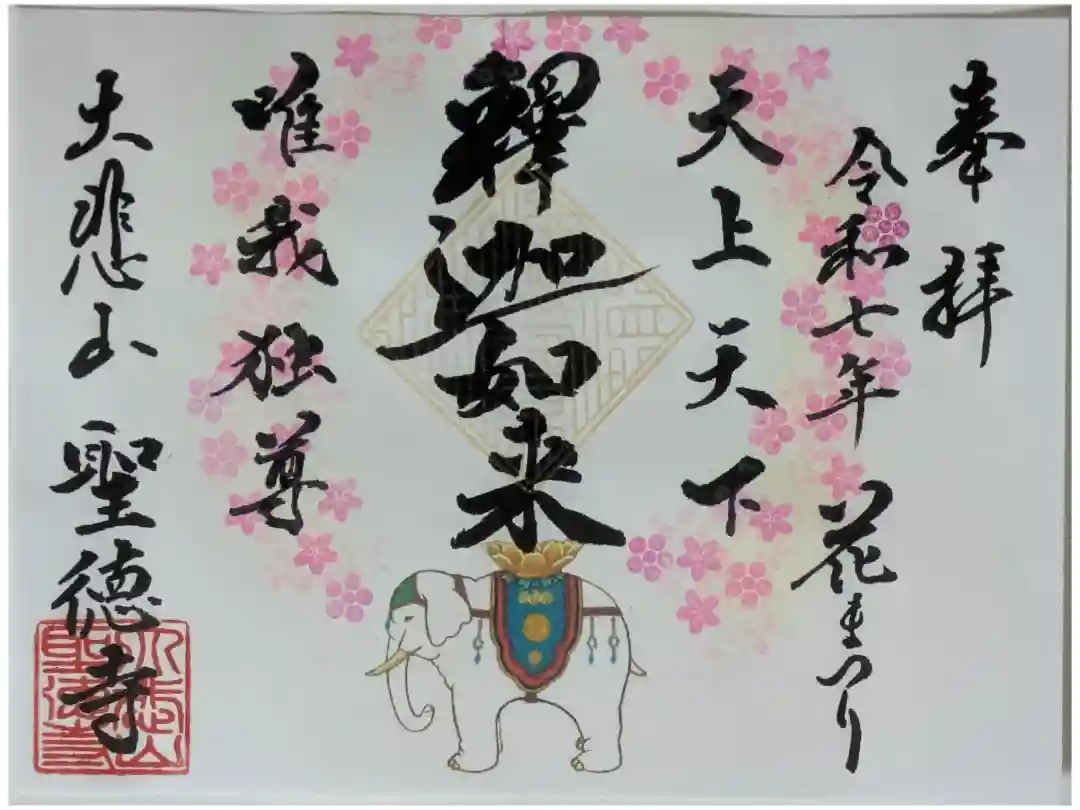 奉拝
令和七年 花まつり
天上天下
釋迦如来
唯我独尊
大悲山 聖徳寺
大悲山
聖徳寺